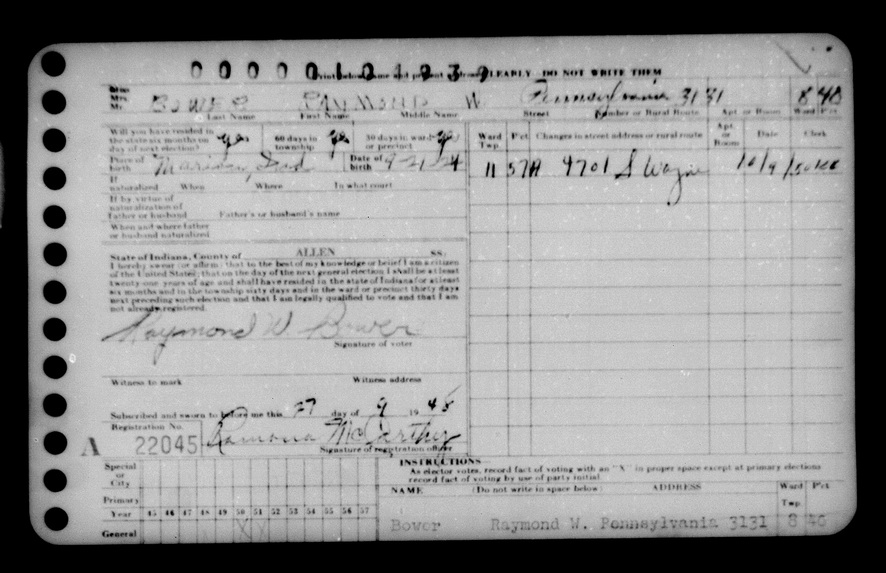 0 0 0 0 0 1 0 1 9 3 9
Print below name and present address CLEARLY DO NOT WRITE THEM
Miss
Mrs.
Mr. BOWER RAYMOND W. Pennsylvania 3131 8 40
Last Name First Name Middle Name Street Number or Rural Route Apt. or Room Ward Pct.
Will you have resided in the state six months on day of next election? yes 60 days in township yes 30 days in ward or precinct yes
Place of birth Marion, Ind Date of birth 9-21-24
If naturalized When Where In what court
If by virtue of naturalization of father or husband Father's or husband's name
When and where father or husband naturalized
Ward Twp. Pct. Changes in street address or rural route Apt. or Room Date Clerk
11 57A 4701 S Wayne 10/9/50
State of Indiana, County of ALLEN SS:
I hereby swear (or affirm) that to the best of my knowledge or belief I am a citizen
of the United States; that on the day of the next general election, I shall be at least
twenty-one years of age and shall have resided in the state of Indiana for at least
six months and in the township sixty days and in the ward or precinct thirty days
next preceding such election and that I am legally qualified to vote and that I am
not already registered.
Raymond W. Bower
Signature of voter
Witness to mark Witness address
Subscribed and sworn to before me this 27 day of 9 1948
Registration No.
A 22045 Ramona McCarthy
Signature of registration officer
INSTRUCTIONS
As elector votes, record fact of voting with an "X" in proper space except at primary elections
record fact of voting by use of party initial.
Special or City
Primary
Year 45 46 47 48 49 50 51 52 53 54 55 56 57
General X X
NAME (Do not write in space below) ADDRESS Ward Twp. Pct.
Bower Raymond W. Pennsylvania 3131 8 40